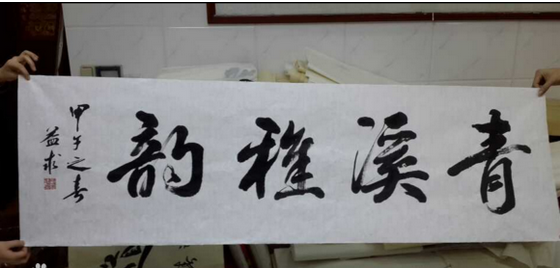 青溪雅韵
甲午之春
益求